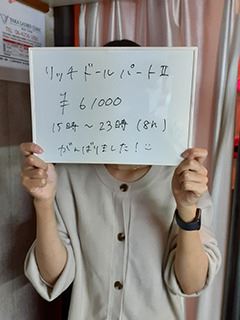 リッチドールパートⅡ
¥61000
15時〜23時(8h)
がんばりました!